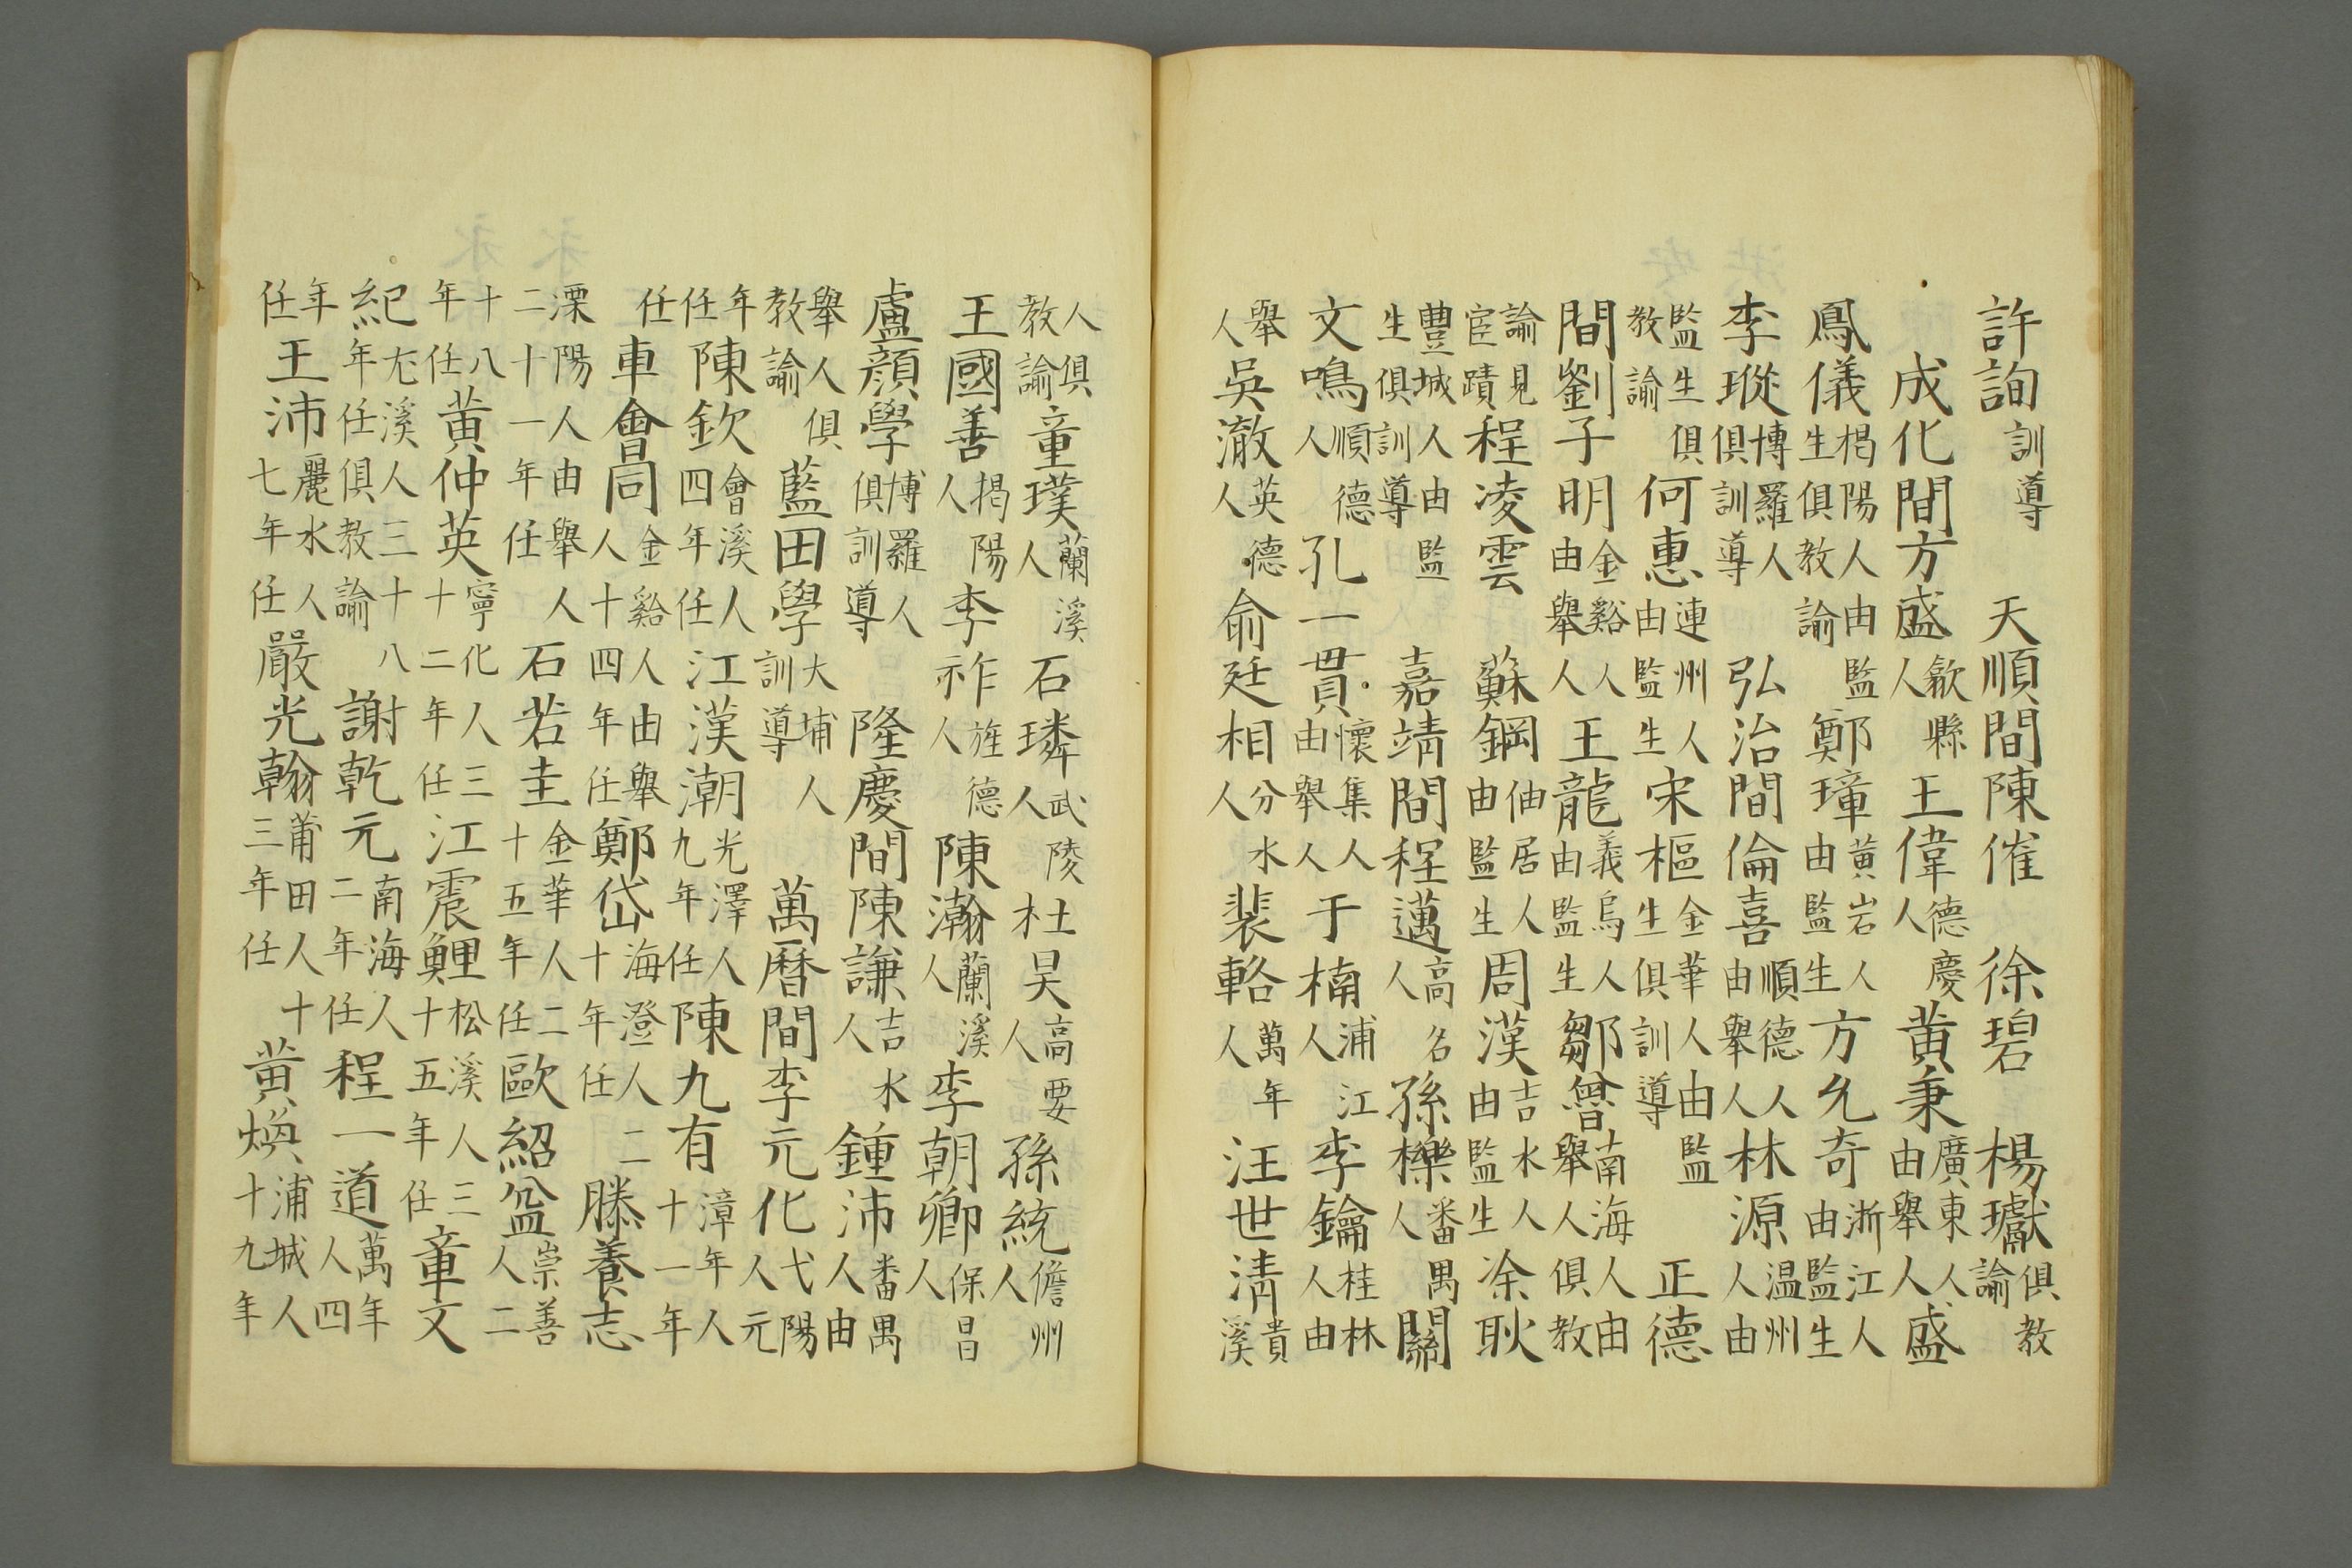 許詢訓導 天順間陳傕 徐碧 楊瓛俱教諭
成化間方盛歙縣人王偉德慶人黃秉廣東人由舉人盛
鳳儀揭陽人由監生俱教諭鄭璋黃岩人由監生方允奇浙江人由監生
李瑽博羅人俱訓導 弘治間倫喜順德人由舉人林源温州人由
監生俱教諭何惠連州人由監生宋樞金華人由監生俱訓導 正德
間劉子明金谿人由舉人王龍義烏人由監生鄒曾南海人由舉人俱教
諭見宦蹟程凌雲 蘇鋼仙居人由監生周漢吉水人由監生涂耿
豐城人由監生俱訓導 嘉靖間程邁高名人孫櫟番禺人關
文鳴順德人孔一貫懷集人由舉人于楠浦江人李鑰桂林人由
舉人吳澈英德人俞廷相分水人裴輅萬年人汪世清貴溪
人俱教諭童璞蘭溪人石璘武陵人杜昊高要人孫統儋州人
王國善揭陽人李祚旌德人陳瀚蘭溪人李朝卿保昌人
盧顏學博羅人俱訓導 隆慶間陳謙吉水人鍾沛番禺人由
舉人俱教諭藍田學大埔人訓導 萬曆間李元化弋陽人元
年任陳欽會溪人四年任江漢潮光澤人九年任陳九有漳年人十一年
任車會同金谿人由舉人十四年任鄭岱海澄人二十年任滕養志
溧陽人由舉人二十一年任石若圭金華人二十五年任歐紹盆崇善人二
十八年任黃仲英寧化人三十二年任江震鯉松溪人三十五年任童文
紀尤溪人三十八年任俱教諭 謝乾元南海人二年任程一道萬年人四
年任王沛麗水人七年任嚴光翰莆田人十三年任黃煥浦城人十九年